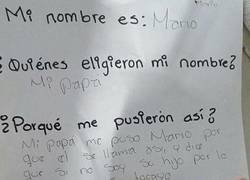 Mario
Mi nombre es: Mario
¿Quiénes eligieron mi nombre?
Mi papá
¿Porqué me pusierón así?
Mi papá me puso Mario por
que el se llama así, y dice
que si no soy su hijo por lo
tocayo